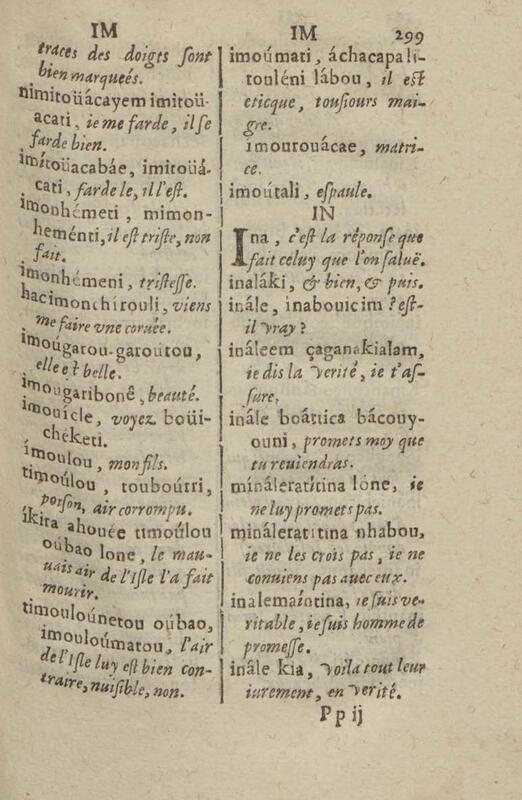 IM
IM
299
traces des doigts ſont
bien marqueés.
nimitoüácayem imitoü-
acati, ie me farde, il ſe
farde bien.
imítoüacabáe, imitoüá-
cati, farde le, il l'eſt.
imonhémeti, mimon-
heménti, il eſt triſte, non
fait.
imonhémeni, triſteſſe.
hacimonchirouli, viens
me faire vne coruée.
imoúgarou-garoútou,
elle eſt belle.
imougaribonê, beauté.
imouícle, voyez boüi-
chéketi.
imoulou, mon fils.
timoúlou, touboútri,
poiſon, air corrompu.
íkira ahouée timoúlou
oúbao lone, le mau-
uais air de l'Iſle l'a fait
mourir.
timouloúnetou oúbao,
imouloúmatou, l'air
de l'Iſle luy eſt bien con-
traire, nuiſible, non.
imoúmati, áchacapali-
touléni lábou, il eſt
eticque, touſiours mai-
gre.
imourouácae, matri-
ce.
imoútali, eſpaule.
IN
Ina, c'eſt la réponſe que
fait celuy que l'on ſaluë.
inaláki, & bien, & puis.
inále, inabouicim? eſt-
il vray?
ináleem çaganakialam,
ie dis la verité, ie t'aſ-
ſure.
inále boáttica bácouy-
ouni, promets moy que
tu reuiendras.
mináleratitina lóne, ie
ne luy promets pas.
mináleratitina nhabou,
ie ne les crois pas, ie ne
conuiens pas auec eux.
inalemaíntina, ie ſuis ve-
ritable, ie ſuis homme de
promeſſe.
inále kia, voila tout leur
iurement, en verité.
Pp ij